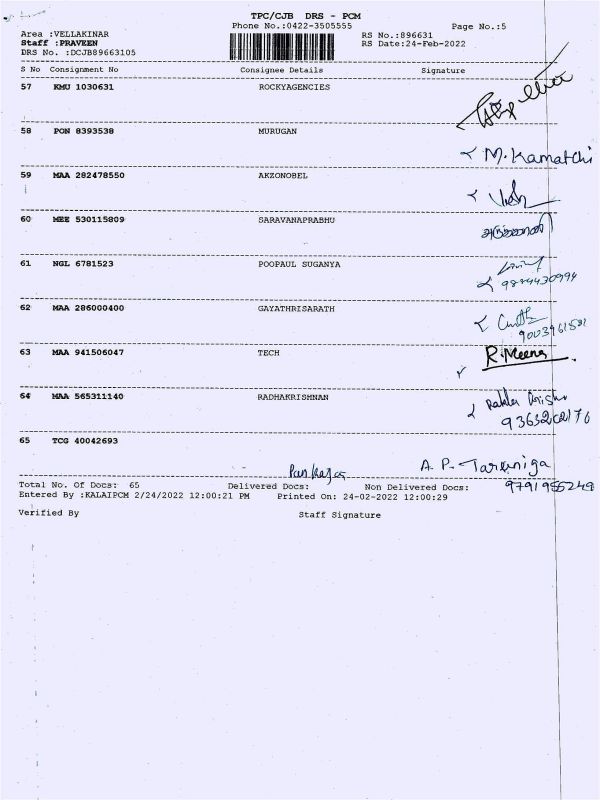 TPC/CJB DRS - PCM
Phone No.:0422-3505555
Page No.:5
Area :VELLAKINAR
RS No.:896631
Staff :PRAVEEN
RS Date:24-Feb-2022
DRS No. :DCJB89663105
S No Consignment No Consignee Details Signature
57 KMU 1030631 ROCKYAGENCIES
58 PON 8393538 MURUGAN
M. Kamatchi
59 MAA 282478550 AKZONOBEL
60 MEE 530115809 SARAVANAPRABHU
61 NGL 6781523 POOPAUL SUGANYA
9894430994
62 MAA 286000400 GAYATHRISARATH
63 MAA 941506047 TECH
R. Meena
64 MAA 565311140 RADHAKRISHNAN
65 TCG 40042693
A. P. Taruniga
Total No. Of Docs: 65 Delivered Docs: Non Delivered Docs:
9791955249
Entered By :KALAIPCM 2/24/2022 12:00:21 PM Printed On: 24-02-2022 12:00:29
Verified By Staff Signature